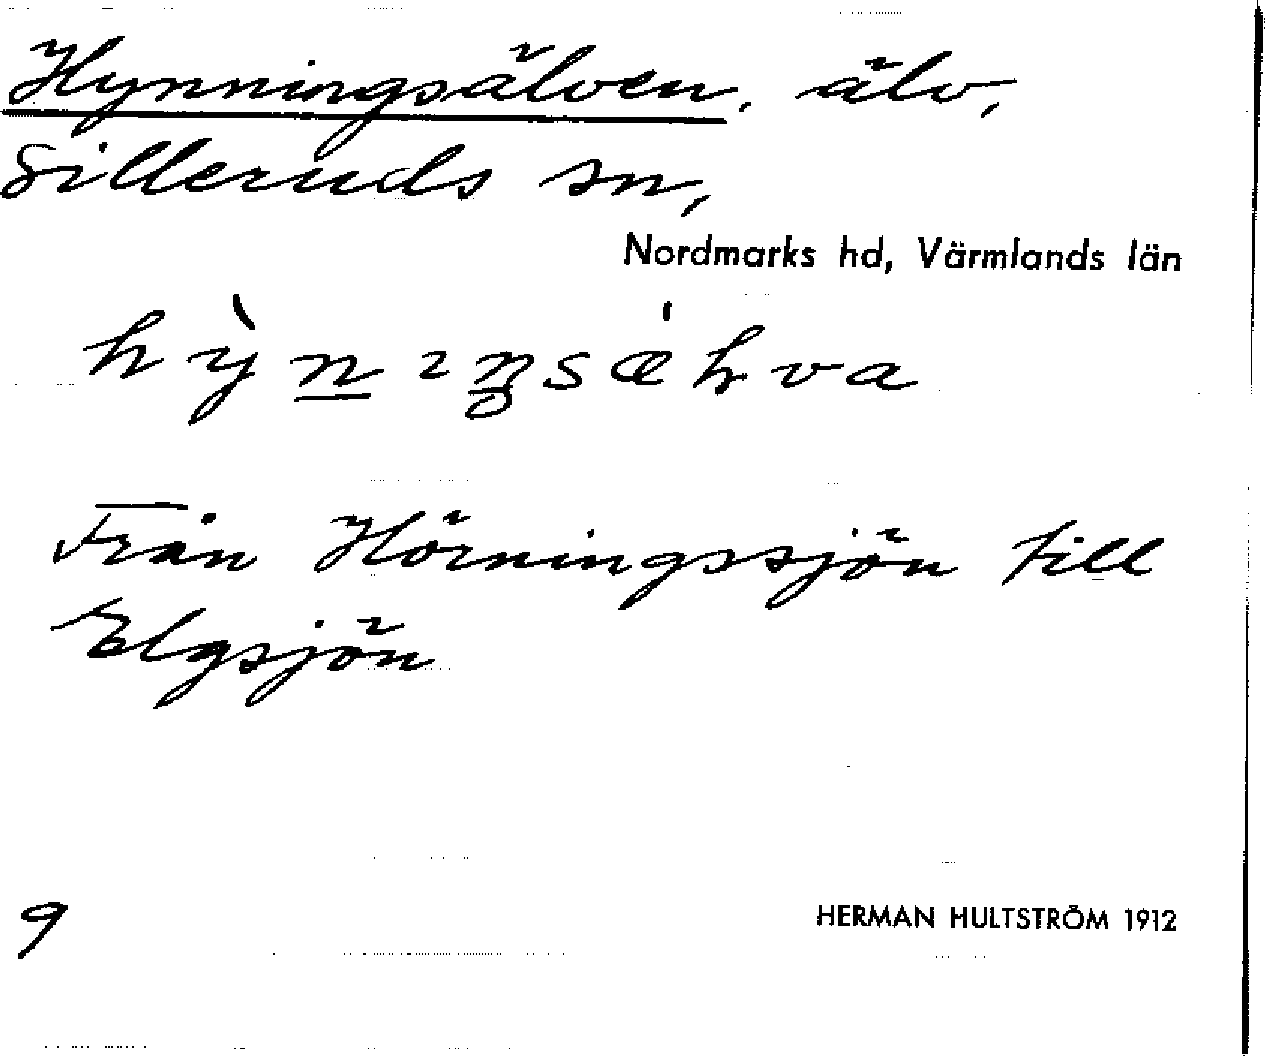 Hynningsälven, älv,
Silleruds sn,
Nordmarks hd, Värmlands län
Från Hörningssjön till
Elgsjön
9
HERMAN HULTSTRÖM 1912